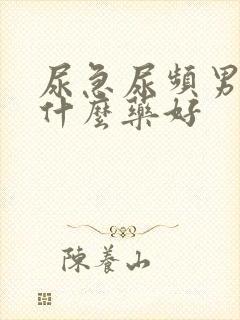 尿急尿頻男
什麼藥好
陳養山